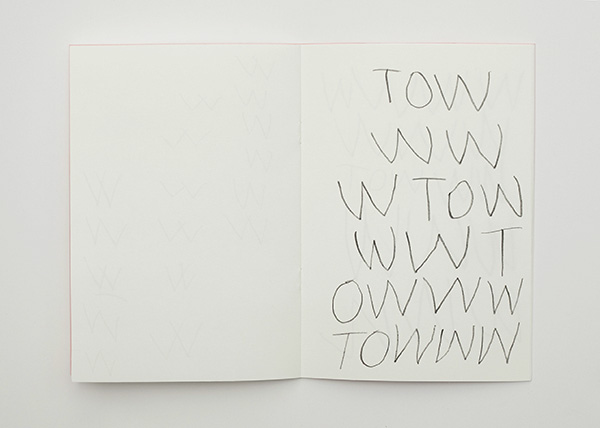 TOW
WW
W TOW
WWT
OWWW
TOWWW